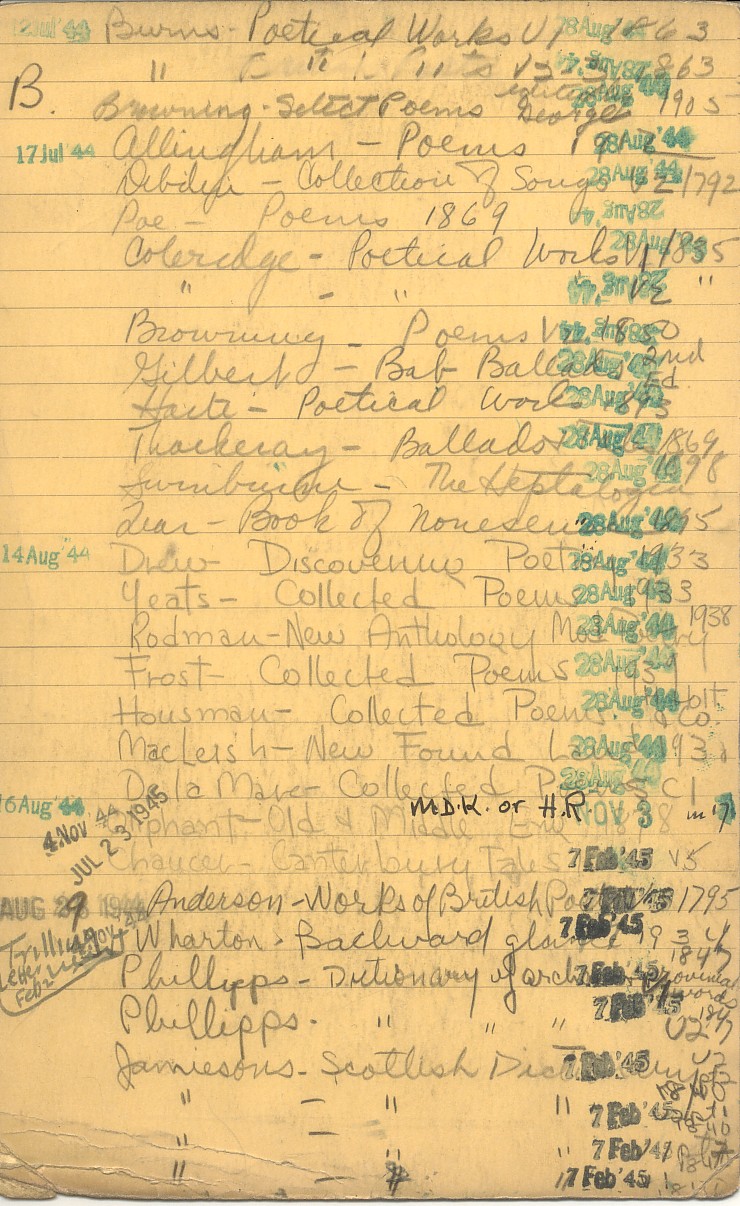 12 Jul '44 Burns - Poetical Works V1 28 Aug '44 1863
" " V2 28 Aug '44 1863
B.
Browning - Select Poems George 28 Aug '44 1905
17 Jul '44 Allingham - Poems 28 Aug '44
Dibdin - Collection of Songs V2 1792 28 Aug '44
Poe - Poems 1869 28 Aug '44
Coleridge - Poetical Works V1 1835 28 Aug '44
" - " V2 " 28 Aug '44
Browning - Poems 1850 28 Aug '44
Gilbert - Bab Ballads 2nd Ed. 28 Aug '44
Harte - Poetical Works 28 Aug '44
Thackeray - Ballads 1869 28 Aug '44
Swinburne - The Heptalogia 1898 28 Aug '44
Lear - Book of Nonesense 28 Aug '44
14 Aug '44 Drew - Discovering Poetry 1933 28 Aug '44
Yeats - Collected Poems 1933 28 Aug '44
Rodman - New Anthology Mod 1938 28 Aug '44
Frost - Collected Poems 28 Aug '44
Housman - Collected Poems Holt & Co. 28 Aug '44
MacLeish - New Found Land 28 Aug '44
De la Mare - Collected Poems 28 Aug '44
16 Aug '44 M.D.K. or H.R. NOV 3
4 Nov '44 Oliphant - Old & Middle Eng
JUL 23 1945
Chaucer - Canterbury Tales 7 Feb '45 V5
AUG 28 1944 9 Anderson - Works of British Poets 7 Feb '45 1795
Trillium
Feb 2
Wharton - Backward glance 1934 7 Feb '45
Phillipps - Dictionary of archaic provincial words V1 1847 7 Feb '45
Phillipps - " " " V2 1847 7 Feb '45
Jamiesons - Scottish Dictionary 7 Feb '45
" - " " 7 Feb '45
" - " 7 Feb '45
" - " " 7 Feb '45